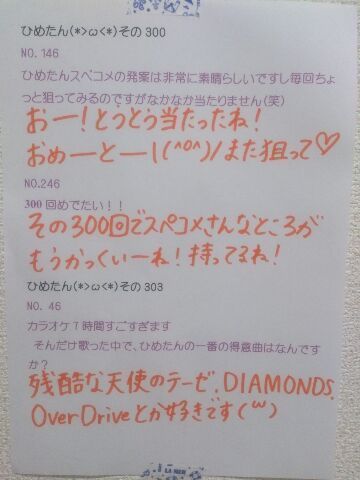 ひめたん(*>ω<*)その300
NO.146
ひめたんスペコメの発案は非常に素晴らしいですし毎回ちょ
っと狙ってみるのですがなかなか当たりません(笑)
おー!とうとう当たったね!
おめーとーー!(^o^)/また狙って♡
NO.246
300回めでたい!!
その300回でスペコメさんなところが
もうかっくいーね!持ってるね!
ひめたん(*>ω<*)その303
NO.46
カラオケ7時間すごすぎます
そんだけ歌った中で、ひめたんの一番の得意曲はなんです
か?
残酷な天使のテーゼ、DIAMONDS、
OverDriveとか好きです(ω)
LA MER